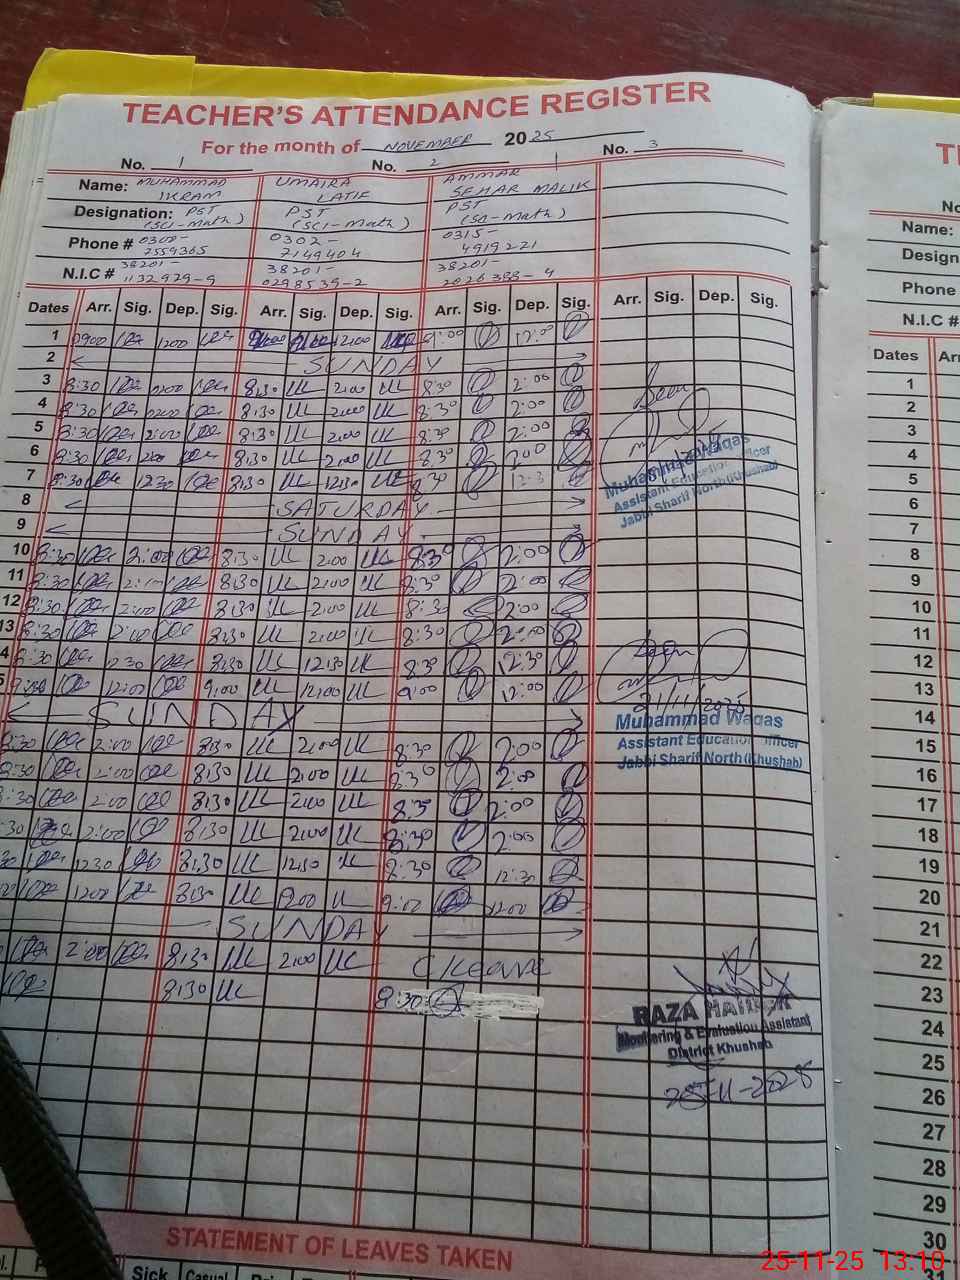 TEACHER'S ATTENDANCE REGISTER
For the month of NOVEMBER 2025
No. 1 No. 2 No. 3
Name: MUHAMMAD IKRAM UMAIRA LATIF AMMAR SEHAR MALIK
Designation: PST (SCI-Math) PST (SCI-Math) PST (SCI-Math)
Phone # 0300-7559365 0302-7149404 0315-4919221
N.I.C # 38201-1132929-9 38201-0298539-2 38201-2026388-4
Dates Arr. Sig. Dep. Sig. Arr. Sig. Dep. Sig. Arr. Sig. Dep. Sig. Arr. Sig. Dep. Sig.
1 0900 1200 12:00 9:00 12:00
2 SUNDAY
3 8:30 2:00 8:30 2:00 8:30 2:00
4 8:30 2:00 8:30 2:00 8:30 2:00
5 8:30 2:00 8:30 2:00 8:30 2:00
6 8:30 2:00 8:30 2:00 8:30 2:00
7 8:30 12:30 8:30 12:30 8:30 12:3
8 SATURDAY
9 SUNDAY
10 8:30 2:00 8:30 2:00 8:30 2:00
11 8:30 2:00 8:30 2:00 8:30 2:00
12 8:30 2:00 8:30 2:00 8:30 2:00
13 8:30 2:00 8:30 2:00 8:30 2:00
4 8:30 1230 8:30 12:30 8:30 12:30
9:00 12:00 9:00 12:00 9:00 12:00
SUNDAY
8:30 2:00 8:30 2:00 8:30 2:00
8:30 2:00 8:30 2:00 8:30 2:00
8:30 2:00 8:30 2:00 8:30 2:00
:30 2:00 8:30 2:00 8:30 2:00
30 1230 8:30 12:30 8:30 12:30
1200 8:30 1200 9:00 12:00
SUNDAY
2:00 8:30 2:00 C/Leave
8:30 8:30
Muhammad Waqas
Assistant Education Officer
Jabbi Sharif North (Khushab)
21/11/2025
Muhammad Waqas
Assistant Education Officer
Jabbi Sharif North (Khushab)
RAZA HAIDER
Monitoring & Evaluation Assistant
District Khushab
25-11-2025
STATEMENT OF LEAVES TAKEN
Sick Casual
Name:
Design
Phone #
N.I.C #
Dates
1
2
3
4
5
6
7
8
9
10
11
12
13
14
15
16
17
18
19
20
21
22
23
24
25
26
27
28
29
30
31
25-11-25 13:10